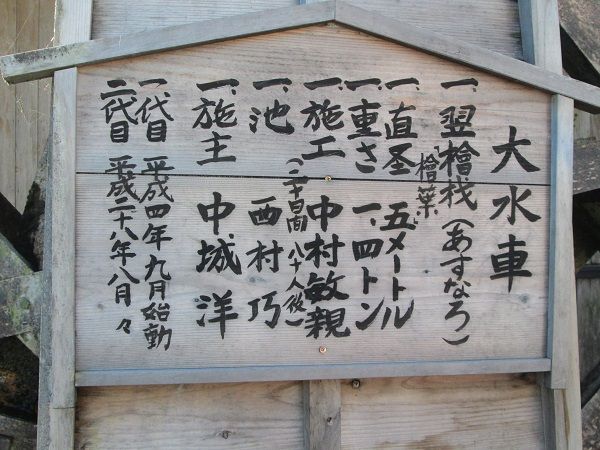 大水車
一、翌檜材(あすなろ)
檜葉
一、直圣 五メートル
一、重さ 一、四トン
一、施工 中村敏親
(二十日間 八十人役)
一、池 西村巧
一、施主 中城洋
一代目 平成四年九月始動
二代目 平成二十八年八月々